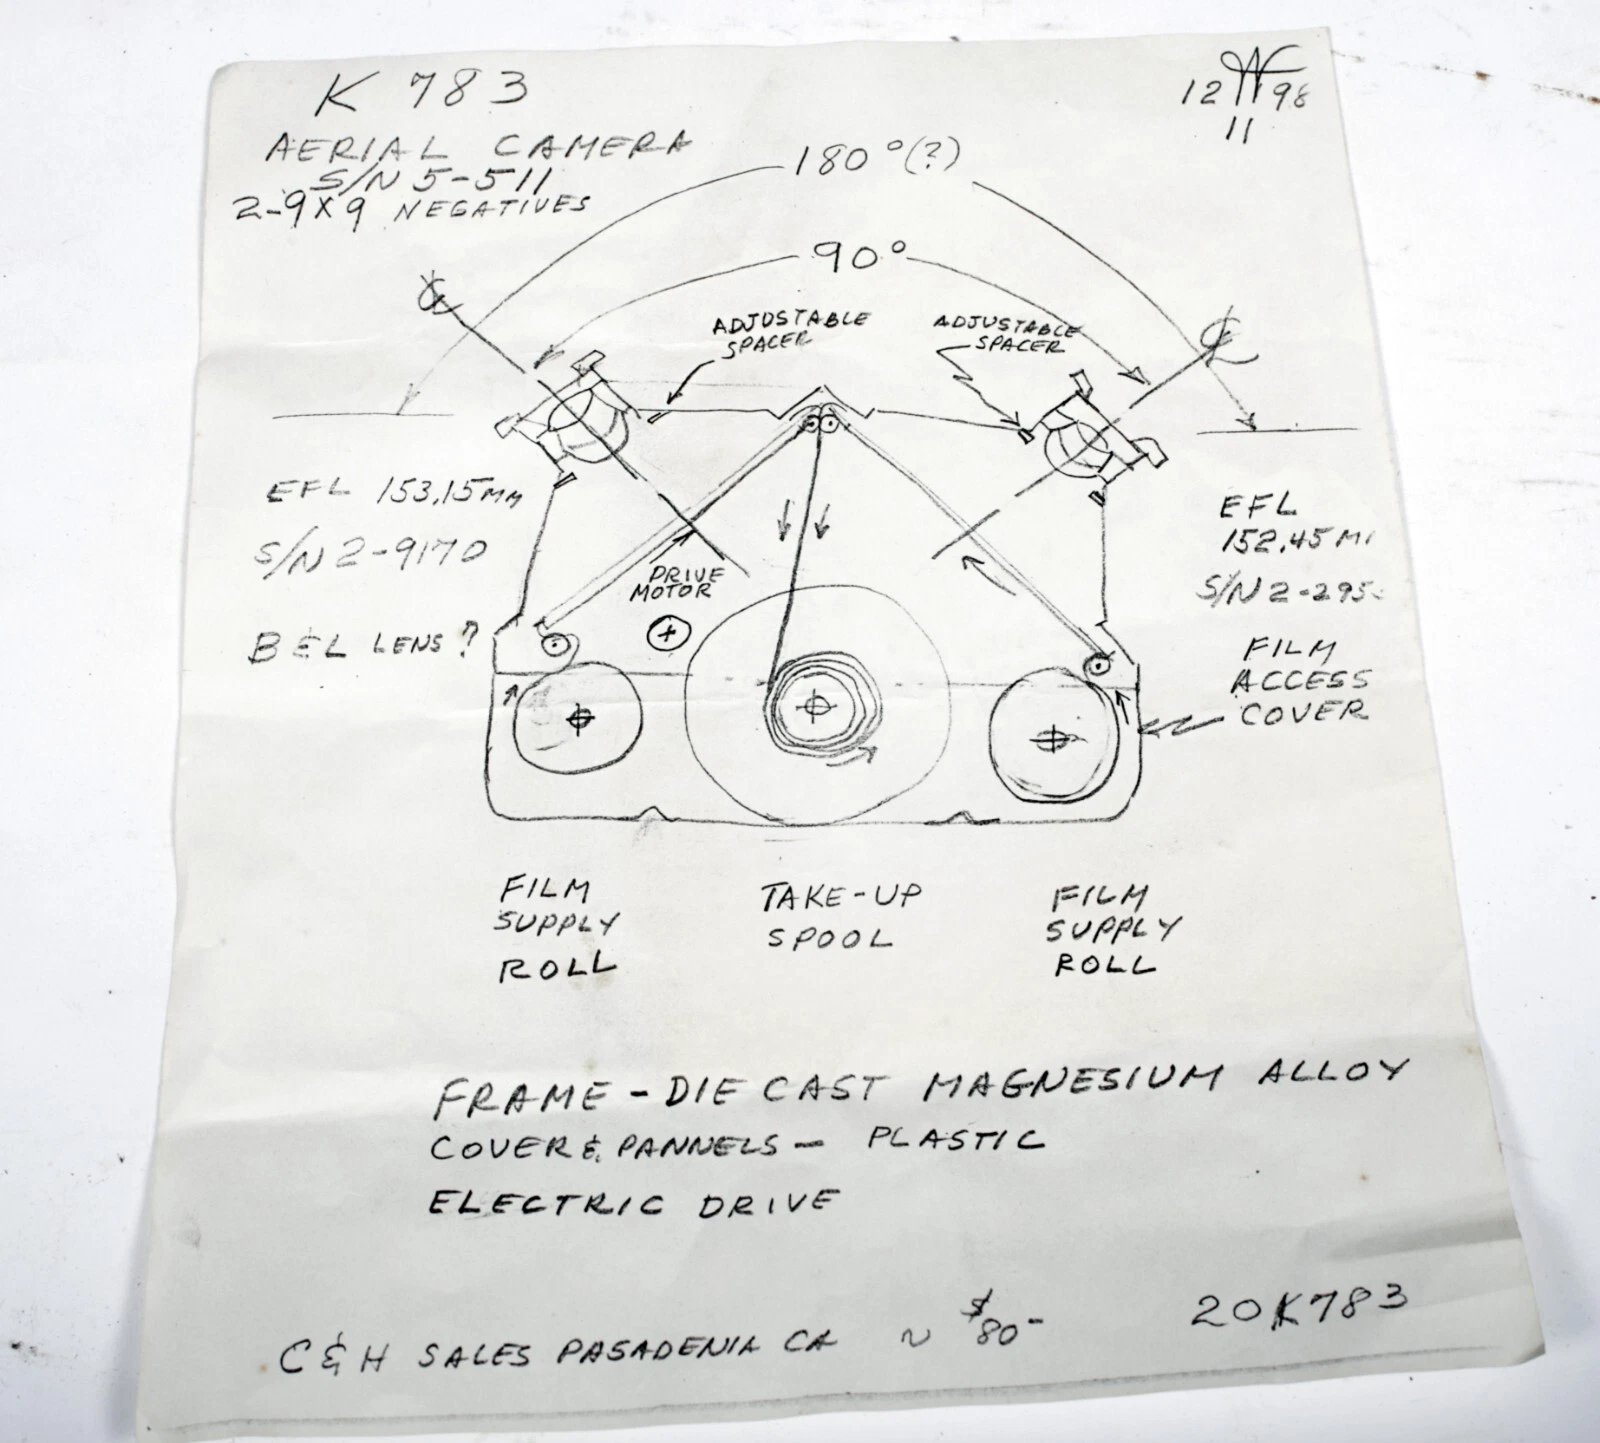 K 783
12 98
11
AERIAL CAMERA
S/N 5-511
2-9X9 NEGATIVES
180°(?)
90°
ADJUSTABLE
SPACER
ADJUSTABLE
SPACER
EFL 153.15MM
S/N 2-9170
B&L LENS?
DRIVE
MOTOR
EFL
152.45
FILM
ACCESS
COVER
FILM
SUPPLY
ROLL
TAKE-UP
SPOOL
FILM
SUPPLY
ROLL
FRAME - DIE CAST MAGNESIUM ALLOY
COVER & PANNELS - PLASTIC
ELECTRIC DRIVE
C&H SALES PASADENIA CA ~ $80-
20K783